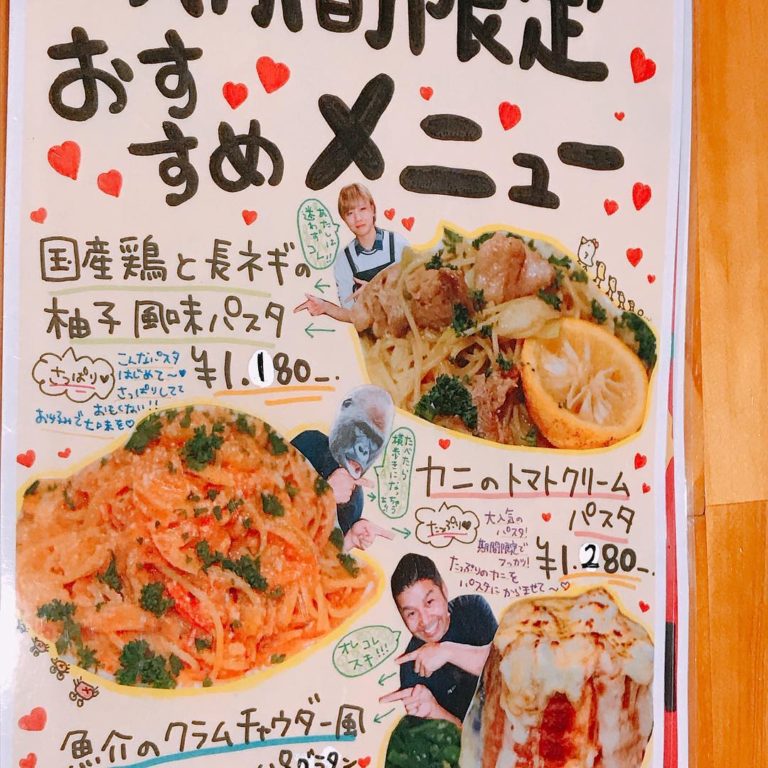 間限定
おす
すめ メニュー
あたしは
迷わず
コレ!!
国産鶏と長ネギの
柚子風味パスタ
さっぱり
こんなパスタ
はじめて〜
さっぱりしてて
おもくない!!
¥1.180-
たべたら
横歩きに
カニのトマトクリーム
パスタ
たっぷり
大人気の
パスタ!
期間限定で
フッカツ!
たっぷりのカニを
パスタにからませて〜
¥1.280-
オレコレ
スキ!!!
魚介のクラムチャウダー風
グラタン